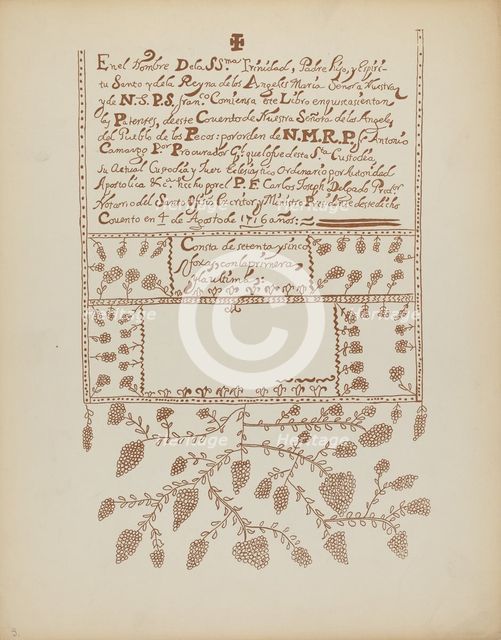 En el Nombre De la SS.ma Trinidad, Padre Hijo, y Espiri-
tu Santo y de la Reyna de los Angeles Maria Señora Nuestra
y de N.S.P.S. Fran.co Comiensa este Libro en que se asientan
las Patentes, de este Convento de Nuestra Señora de los Angeles
del Pueblo de los Pecos: por orden de N.M.R.P. Fr. Antonio
Camargo Por Procurador G.l que lo fue de esta S.ta Custodia,
su Actual Custodio y Juez Eclesiastico Ordinario por Autoridad
Apostolica &c.a hecho por el P. F. Carlos Joseph Delgado Pred.or
Notario del Santo Off.o Escritor y Ministro Presidente de se dicho
Covento en 4 de Agosto de 1716 años:
Consta de setenta y sinco
foxas con la primera
y la ultima:
Heritage
Heritage
Heritage
Heritage
Heritage
Images
3.